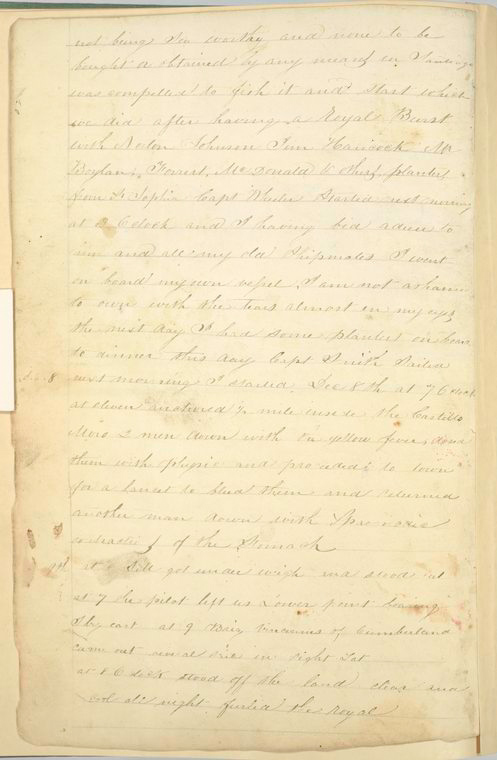 not being sea worthy and none to be
bought or obtained by any means in
was compelled to fish it and start which
we did after having a Royal Burst
with Norton Johnson Jim Hancock Mr
Boylan, Forrest, Mc Donald & other planters
from St Sophia Capt Wheeler Started next morning
at 8 O clock and I having bid adieu to
him and all my old Shipmates I went
on board my own vessel, I am not ashamed
to own with the tears almost in my eyes
the next day I had some planters on board
to dinner this day Capt Smith Sailed
next morning I started Dec 8th at 7 O clock
at eleven anchored ½ mile inside the Castillo
Moro 2 men down with yellow fever, dosed
them with physic and proceeded to town
for a lancet to bleed them and returned
another man down with Spasmodic
of the Stomach
9th at 6 Still got under weigh and stood out
at 7 the pilot left us Lower point bearing
by east at 9 Brig Vincennes of Cumberland
came out in sight Lat
at 8 O clock stood off the land clear and
cool all night furled the Royal